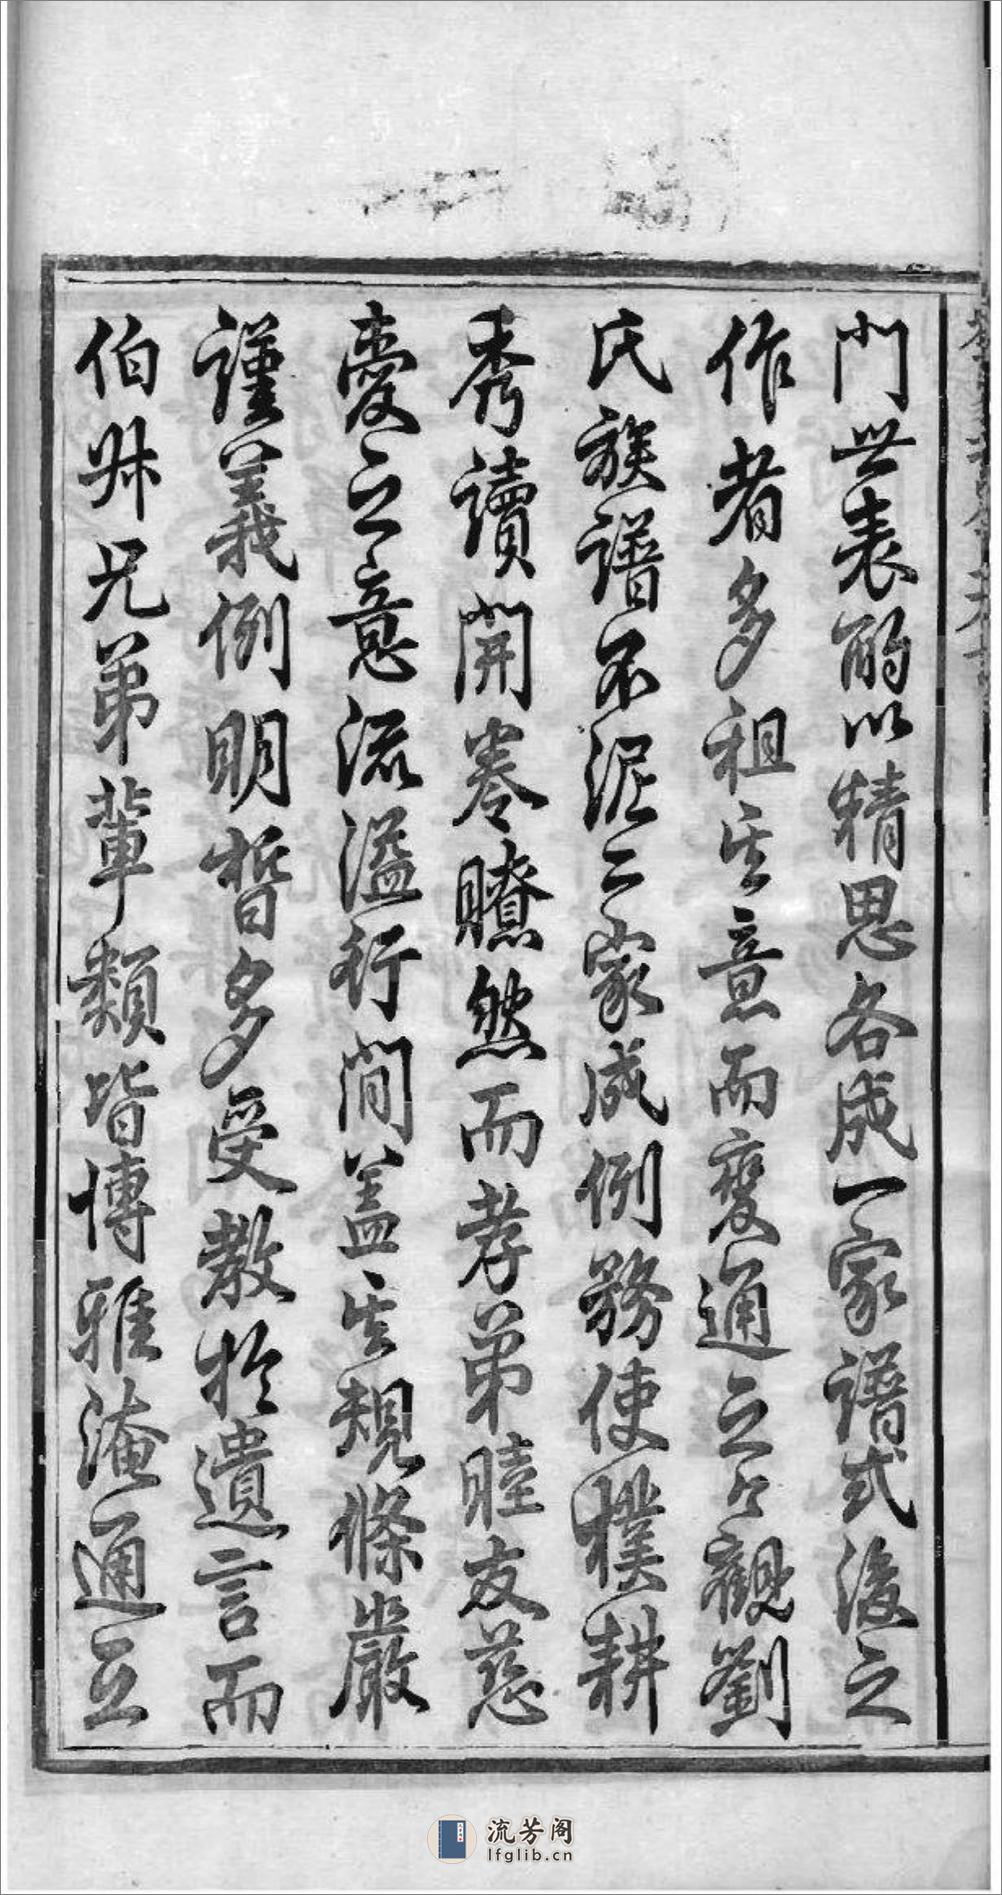 門世表酌以精思各成一家譜式後之
作者多祖其意而變通之今觀劉
氏族譜不泥二家成例務使樸耕
秀讀開卷瞭然而孝弟睦友慈
愛之意流溢行間蓋其規條嚴
謹義例明晳多受教於遺言而
伯叔兄弟輩類皆博雅淹通互
流芳阁
lfglib.cn